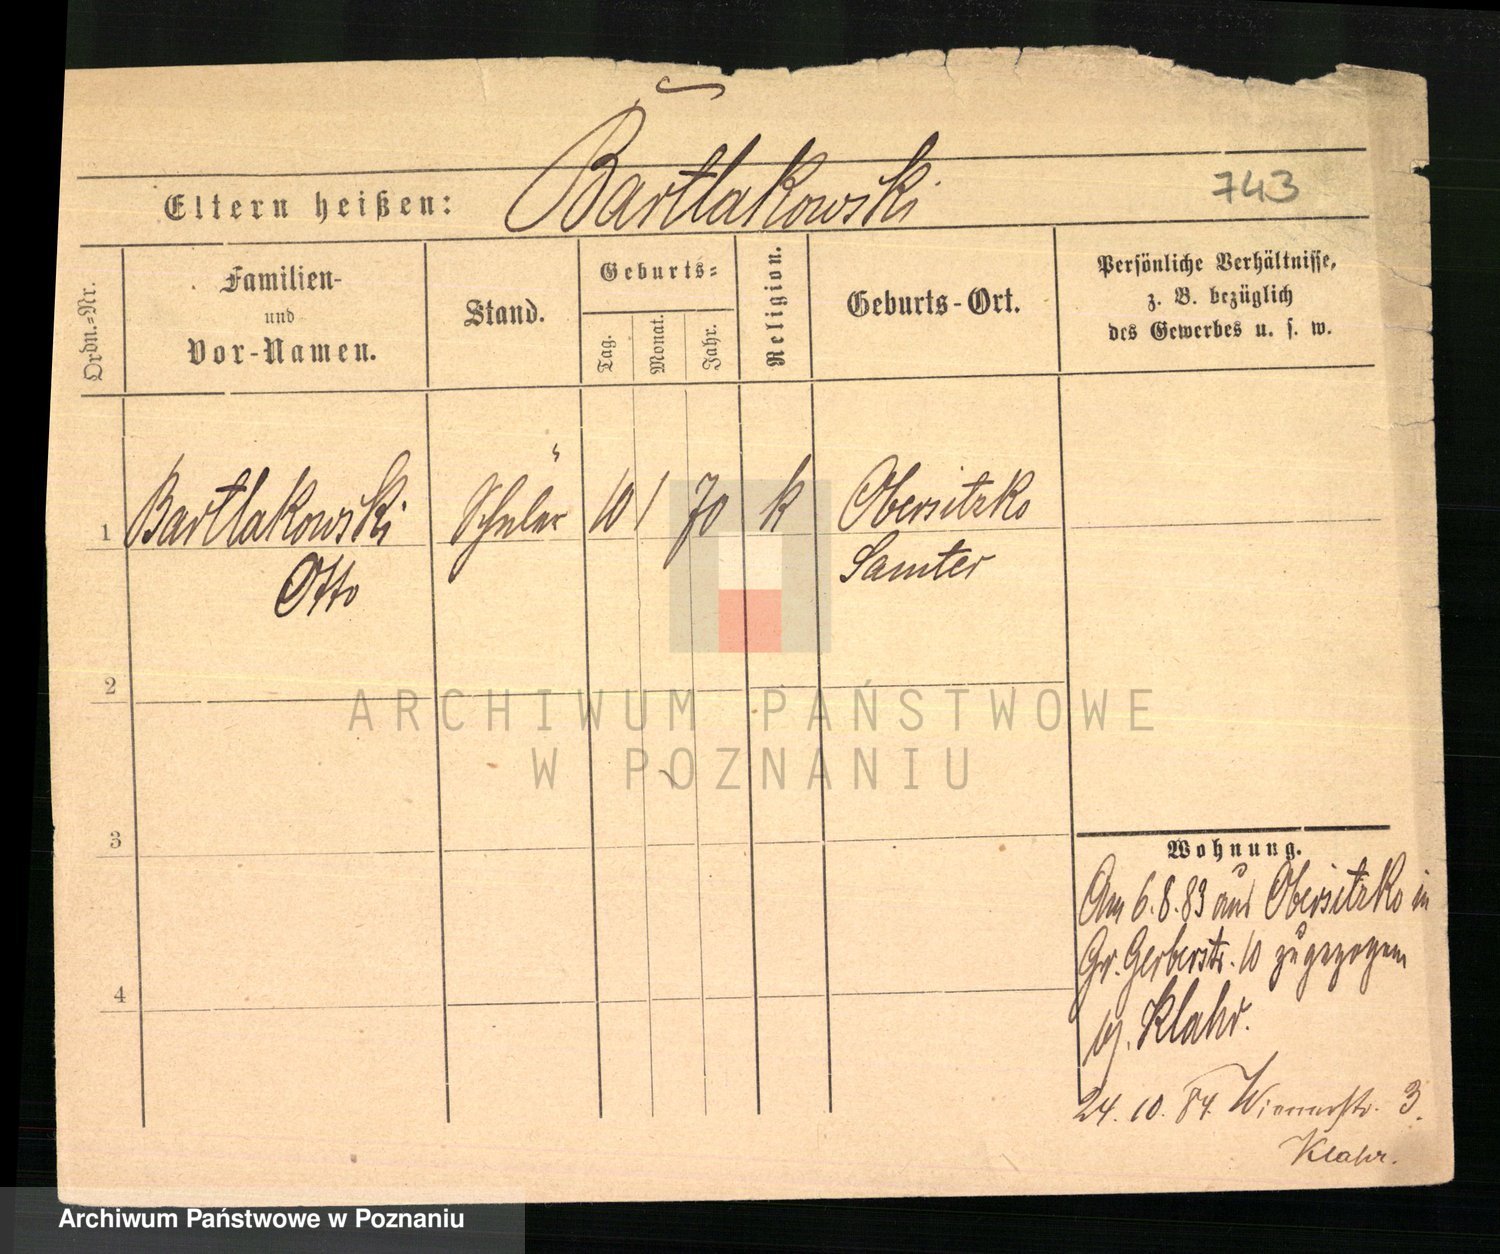 Bartlakowski
Eltern heißen:
743
Ordn.-Nr.
Familien-
und
Vor-Namen.
Stand.
Geburts-
Tag.
Monat.
Jahr.
Religion.
Geburts-Ort.
Persönliche Verhältnisse,
z. B. bezüglich
des Gewerbes u. s. w.
1 Bartlakowski Schüler 10 1 70 k Obersitzko
Otto Samter
2
3
4
Wohnung.
Am 6.8.83 aus Obersitzko in
Gr. Gerberstr. 10 zugezogen
b. Klahr.
24. 10. 84. Wienerstr. 3.
Klahr.
ARCHIWUM PAŃSTWOWE
W POZNANIU
Archiwum Państwowe w Poznaniu